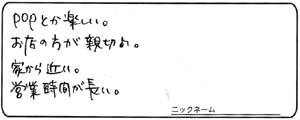 popとか楽しい。
お店の方が親切。
家から近い。
営業時間が長い。
ニックネーム